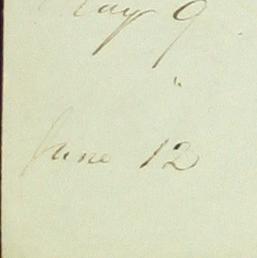 May 9
"
June 12